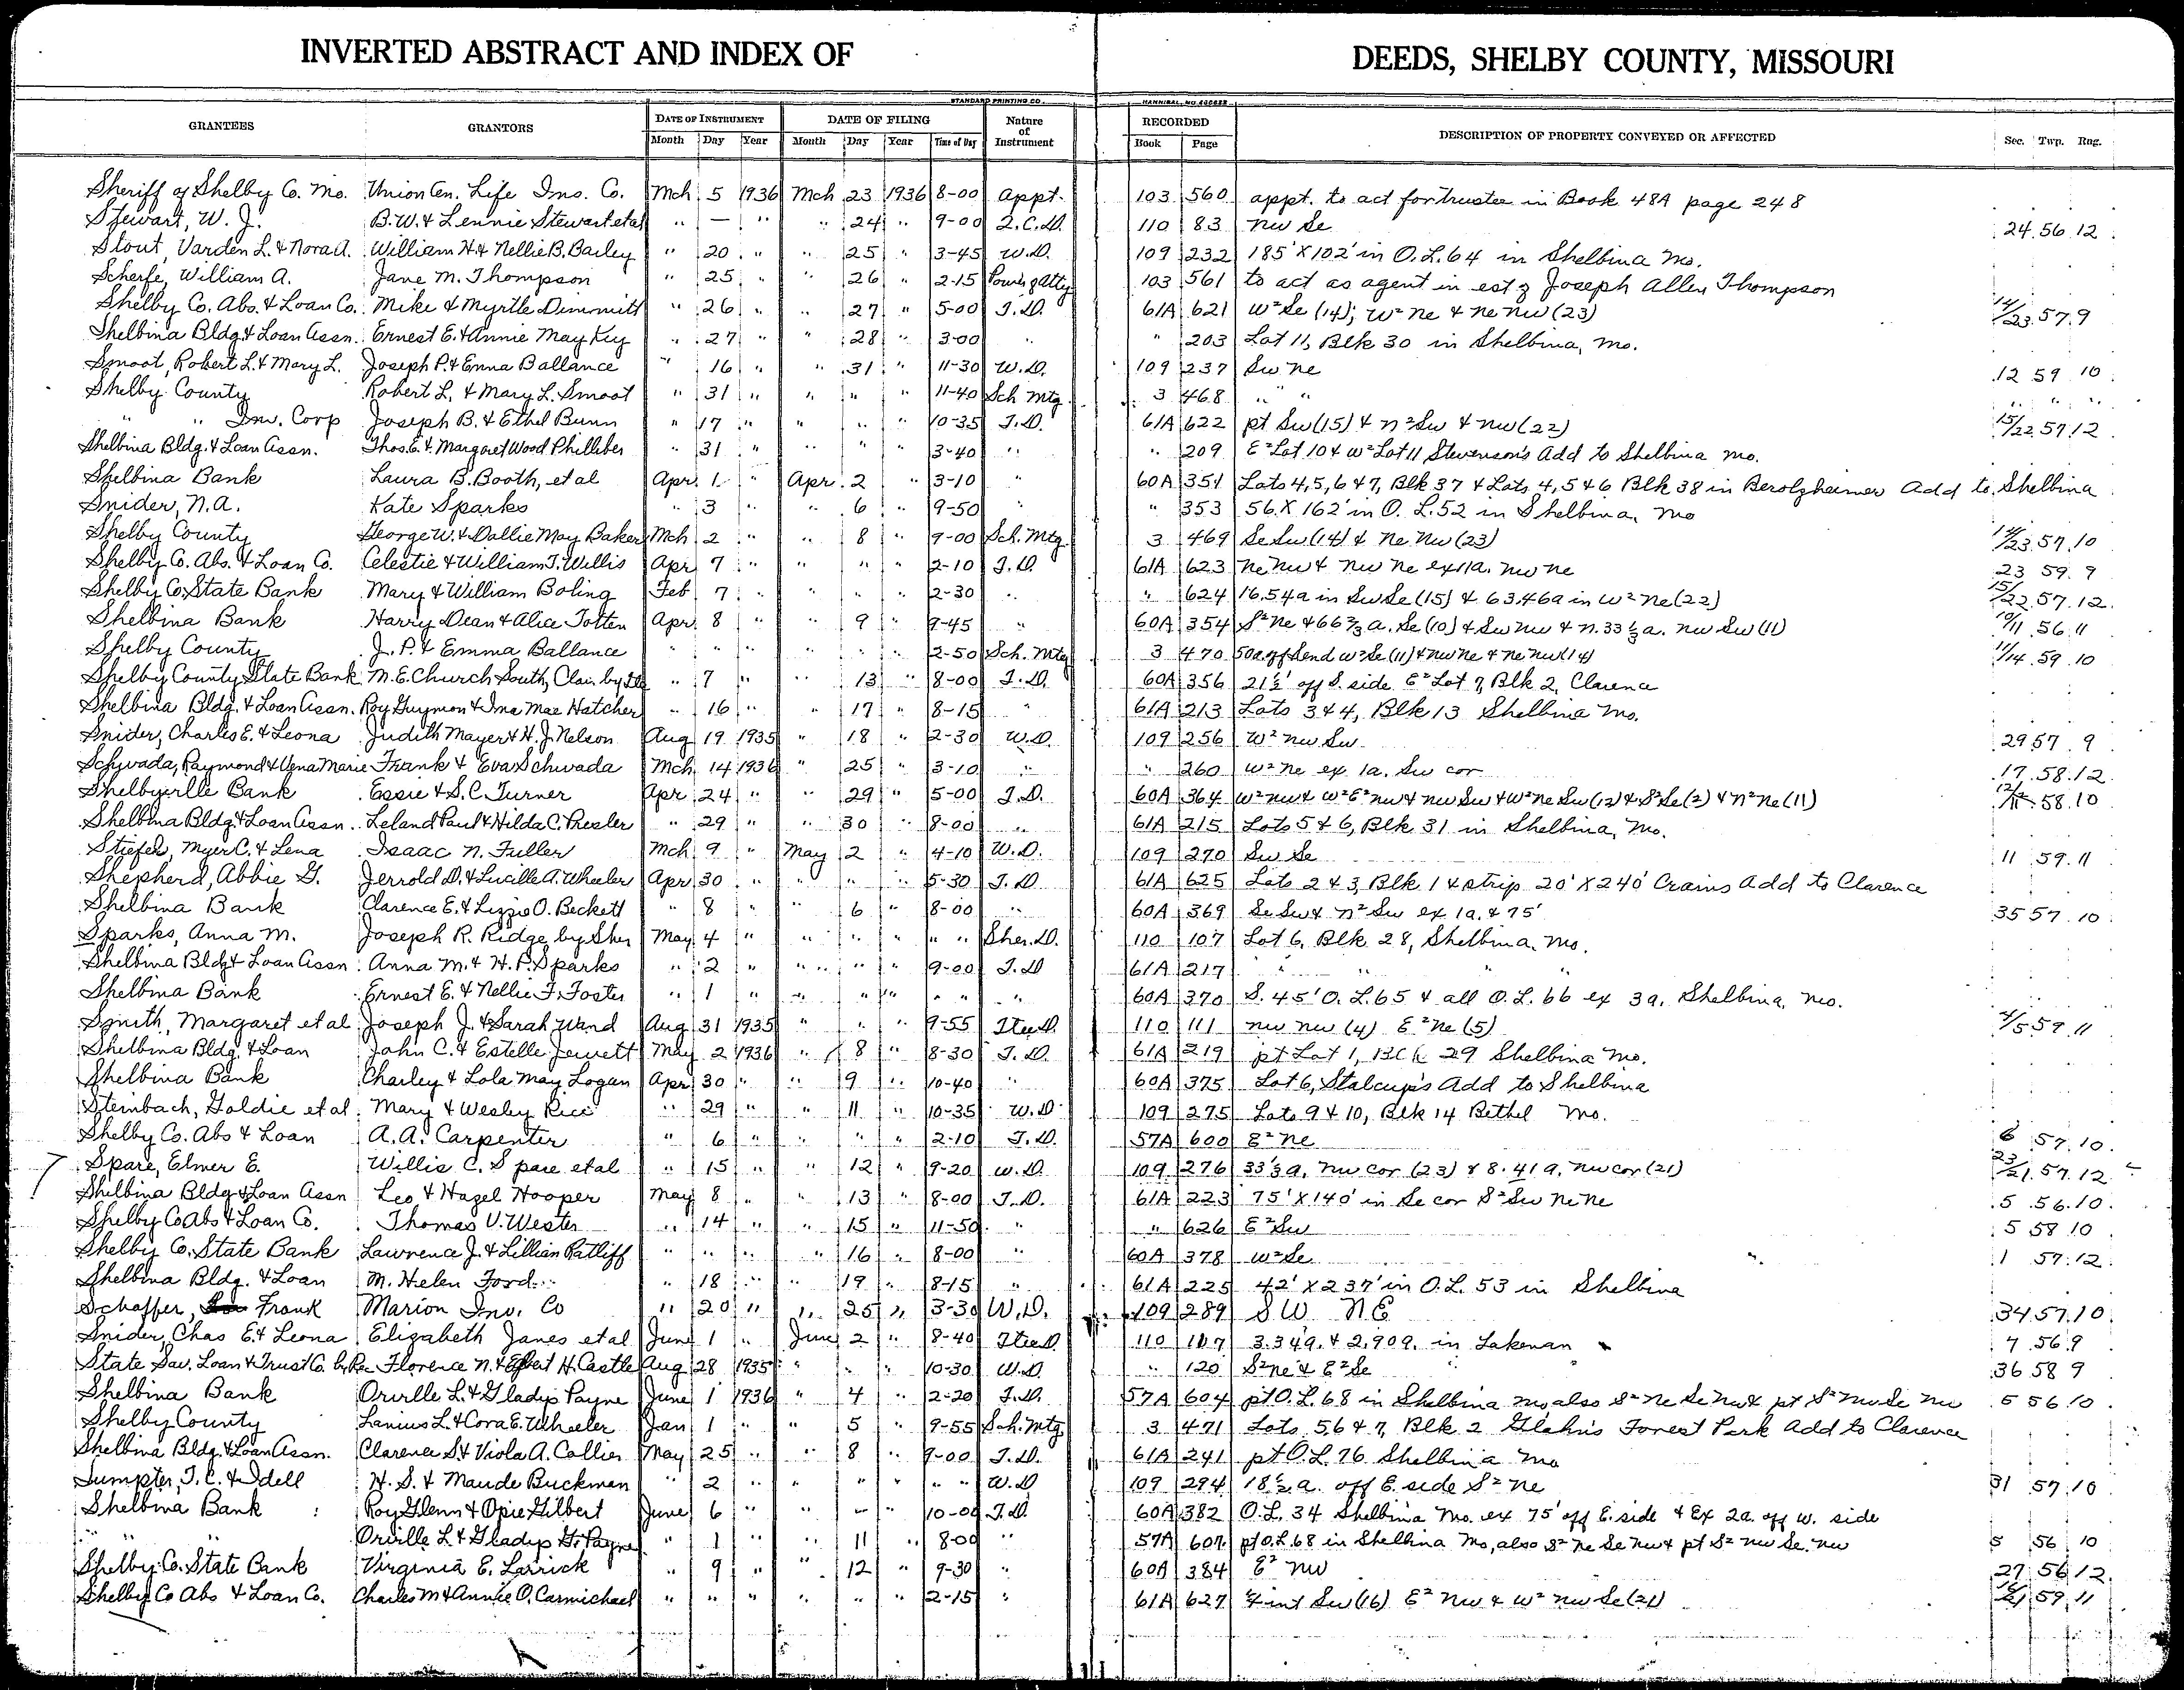 INVERTED ABSTRACT AND INDEX OF DEEDS, SHELBY COUNTY, MISSOURI
STANDARD PRINTING CO. HANNIBAL, NO.
GRANTEES GRANTORS DATE OF INSTRUMENT DATE OF FILING Nature of Instrument RECORDED DESCRIPTION OF PROPERTY CONVEYED OR AFFECTED Sec. Twp. Rng.
Month Day Year Month Day Year Time of Day Book Page
Sheriff of Shelby Co. Mo. Union Cen. Life Ins. Co. Mch 5 1936 Mch 23 1936 8-00 Appt. 103 560 appt. to act for trustee in Book 48A page 248
Stewart, W. J. B.W. & Lennie Stewart etal " — " " 24 " 9-00 Q.C.D. 110 83 NW SE 24 56 12
Stout, Varden L. & Nora A. William H. & Nellie B. Bailey " 20 " " 25 " 3-45 W.D. 109 232 185' X 102' in O.L. 64 in Shelbina Mo.
Scherfe, William A. Jane M. Thompson " 25 " " 26 " 2-15 Power of Atty 103 561 to act as agent in est of Joseph Allen Thompson
Shelby Co. Abs. & Loan Co. Mike & Myrtle Dimmitt " 26 " " 27 " 5-00 T.D. 61A 621 W² Se (14); W² Ne & Ne Nw (23) 14/23 57 9
Shelbina Bldg. & Loan Assn. Ernest E. & Annie May Key " 27 " " 28 " 3-00 " " 203 Lot 11, Blk 30 in Shelbina, Mo.
Smoot, Robert L. & Mary L. Joseph P. & Emma Ballance " 16 " " 31 " 11-30 W.D. 109 237 Sw Ne 12 59 10
Shelby County Robert L. & Mary L. Smoot " 31 " " " " 11-40 Sch Mtg 3 468 " " " " "
" " Inv. Corp Joseph B. & Ethel Bunn " 17 " " " " 10-35 T.D. 61A 622 pt Sw (15) & N² Sw & Nw (22) 15/22 57 12
Shelbina Bldg. & Loan Assn. Thos. E. & Margaret Wood Philliber " 31 " " " " 3-40 " " 209 E² Lot 10 & W² Lot 11 Stevenson's Add to Shelbina Mo.
Shelbina Bank Laura B. Booth, et al Apr. 1 " Apr. 2 " 3-10 " 60A 351 Lots 4, 5, 6 & 7, Blk 37 & Lots 4, 5 & 6 Blk 38 in Berolzheimer Add to Shelbina
Snider, N.A. Kate Sparks " 3 " " 6 " 9-50 " " 353 56 X 162' in O.L. 52 in Shelbina, Mo
Shelby County George W. & Dollie May Baker Mch 2 " " 8 " 9-00 Sch. Mtg 3 469 Se Sw (14) & Ne Nw (23) 14/23 57 10
Shelby Co. Abs. & Loan Co. Celestie & William T. Willis Apr 7 " " " " 2-10 T.D. 61A 623 Ne Nw & Nw Ne ex 11a. Nw Ne 23 59 9
Shelby Co. State Bank Mary & William Boling Feb 7 " " " " 2-30 " " 624 16.54a in Sw Se (15) & 63.46a in W² Ne (22) 15/22 57 12
Shelbina Bank Harry Dean & Alice Totten Apr. 8 " " 9 " 9-45 " 60A 354 S² Ne & 66⅔ a. Se (10) & Sw Nw & N. 33⅓ a. Nw Sw (11) 10/11 56 11
Shelby County J. P. & Emma Ballance " " " " " " 2-50 Sch. Mtg 3 470 50a off S end W² Se (11) & Nw Ne & Ne Nw (14) 11/14 59 10
Shelby County State Bank M.E. Church South, Clar. by " 7 " " 13 " 8-00 T.D. 60A 356 21½' off S. side E² Lot 7, Blk 2, Clarence
Shelbina Bldg. & Loan Assn. Roy Guymon & Ina Mae Hatcher " 16 " " 17 " 8-15 " 61A 213 Lots 3 & 4, Blk 13 Shelbina Mo.
Snider, Charles E. & Leona Judith Mayer & H. J. Nelson Aug 19 1935 " 18 " 2-30 W.D. 109 256 W² Nw Sw 29 57 9
Schwada, Raymond & Vena Marie Frank & Eva Schwada Mch 14 1936 " 25 " 3-10 " " 260 W² Ne ex 1a. Sw cor 17 58 12
Shelbyville Bank Essie & S. C. Turner Apr 24 " " 29 " 5-00 T.D. 60A 364 W² Nw & W² E² Nw & Nw Sw & W² Ne Sw (12) & S² Se (2) & N² Ne (11) 58 10
Shelbina Bldg. & Loan Assn. Leland Paul & Hilda C. Presler " 29 " " 30 " 8-00 " 61A 215 Lots 5 & 6, Blk 31 in Shelbina, Mo.
Stiefel, Myer C. & Lena Isaac N. Fuller Mch 9 " May 2 " 4-10 W.D. 109 270 Sw Se 11 59 11
Shepherd, Abbie G. Jerrold D. & Lucille A. Wheeler Apr 30 " " " " 5-30 T.D. 61A 625 Lots 2 & 3, Blk 1 & strip 20' X 240' Crains Add to Clarence
Shelbina Bank Clarence E. & Lizzie O. Beckett " 8 " " 6 " 8-00 " 60A 369 Se Sw & N² Sw ex 1a. & 75' 35 57 10
Sparks, Anna M. Joseph R. Ridge, by Sher May 4 " " " " " " Sher. D. 110 107 Lot 6, Blk 28, Shelbina, Mo.
Shelbina Bldg & Loan Assn. Anna M. & H. F. Sparks " 2 " " " " 9-00 T.D 61A 217 " " " "
Shelbina Bank Ernest E. & Nellie F. Foster " 1 " " " " " " " 60A 370 S. 45' O.L. 65 & all O.L. 66 ex 3a, Shelbina, Mo.
Smith, Margaret et al Joseph J. & Sarah Wand Aug 31 1935 " " " 9-55 Ttee D. 110 111 Nw Nw (4) E² Ne (5) 4/5 59 11
Shelbina Bldg. & Loan John C. & Estelle Jewett May 2 1936 " 8 " 8-30 T.D. 61A 219 pt Lot 1, Blk 29 Shelbina Mo.
Shelbina Bank Charley & Lola May Logan Apr 30 " " 9 " 10-40 " 60A 375 Lot 6, Stalcup's Add to Shelbina
Steinbach, Goldie et al Mary & Wesley Rice " 29 " " 11 " 10-35 W.D. 109 275 Lots 9 & 10, Blk 14 Bethel Mo.
Shelby Co. Abs & Loan A. A. Carpenter " 6 " " " " 2-10 T.D. 57A 600 E² Ne 6 57 10
Spare, Elmer E. Willis C. Spare et al " 15 " " 12 " 9-20 W.D. 109 276 33⅓a, Nw cor (23) & 8.41a, Nw cor (21) 23/21 57 12
Shelbina Bldg & Loan Assn Leo & Hazel Hooper May 8 " " 13 " 8-00 T.D. 61A 223 75' X 140' in Se cor S² Sw Ne Ne 5 56 10
Shelby Co Abs & Loan Co. Thomas V. Wester " 14 " " 15 " 11-50 " " 626 E² Sw 5 58 10
Shelby Co. State Bank Lawrence J. & Lillian Ratliff " " " " 16 " 8-00 " 60A 378 W² Se 1 57 12
Shelbina Bldg. & Loan M. Helen Ford " 18 " " 19 " 8-15 " 61A 225 42' X 237' in O.L. 53 in Shelbina
Schaffer, Frank Marion Inv. Co " 20 " " 25 " 3-30 W.D. 109 289 SW NE 34 57 10
Snider, Chas E. & Leona Elizabeth Janes et al June 1 " June 2 " 8-40 Ttee D. 110 117 3.34a. & 2.90a. in Lakenan 7 56 9
State Sav. Loan & Trust Co. by Rec Florence N. & Egbert H. Castle Aug 28 1935 " " " 10-30 W.D. " 120 S² Ne & E² Se 36 58 9
Shelbina Bank Orville L. & Gladys Payne June 1 1936 " 4 " 2-20 T.D. 57A 604 pt O.L. 68 in Shelbina Mo also S² Ne Se Nw & pt S² Nw Se Nw 5 56 10
Shelby County Lanius L. & Cora E. Wheeler Jan 1 " " 5 " 9-55 Sch. Mtg 3 471 Lots 5 6 & 7, Blk 2 Glahn's Forest Park Add to Clarence
Shelbina Bldg. & Loan Assn. Clarence S. & Viola A. Collier May 25 " " 8 " 9-00 T.D. 61A 241 pt O.L. 76 Shelbina Mo
Sumpter, T. C. & Idell H. S. & Maude Buckman " 2 " " " " " " W.D 109 294 18½ a. off E. side S² Ne 31 57 10
Shelbina Bank Roy Glenn & Opie Gilbert June 6 " " " 10-00 T.D. 60A 382 O.L. 34 Shelbina Mo. ex 75' off E. side & Ex 2a. off W. side
" " Orville L & Gladys G. Payne " 1 " " 11 " 8-00 " 57A 607 pt O.L. 68 in Shelbina Mo, also S² Ne Se Nw & pt S² Nw Se. Nw 5 56 10
Shelby Co. State Bank Virginia E. Larrick " 9 " " 12 " 9-30 " 60A 384 E² NW 27 56 12
Shelby Co Abs & Loan Co. Charles M & Annie O. Carmichael " " " " " " 2-15 " 61A 627 int Sw (16) E² Nw & W² Nw Se (21) 16/21 59 11